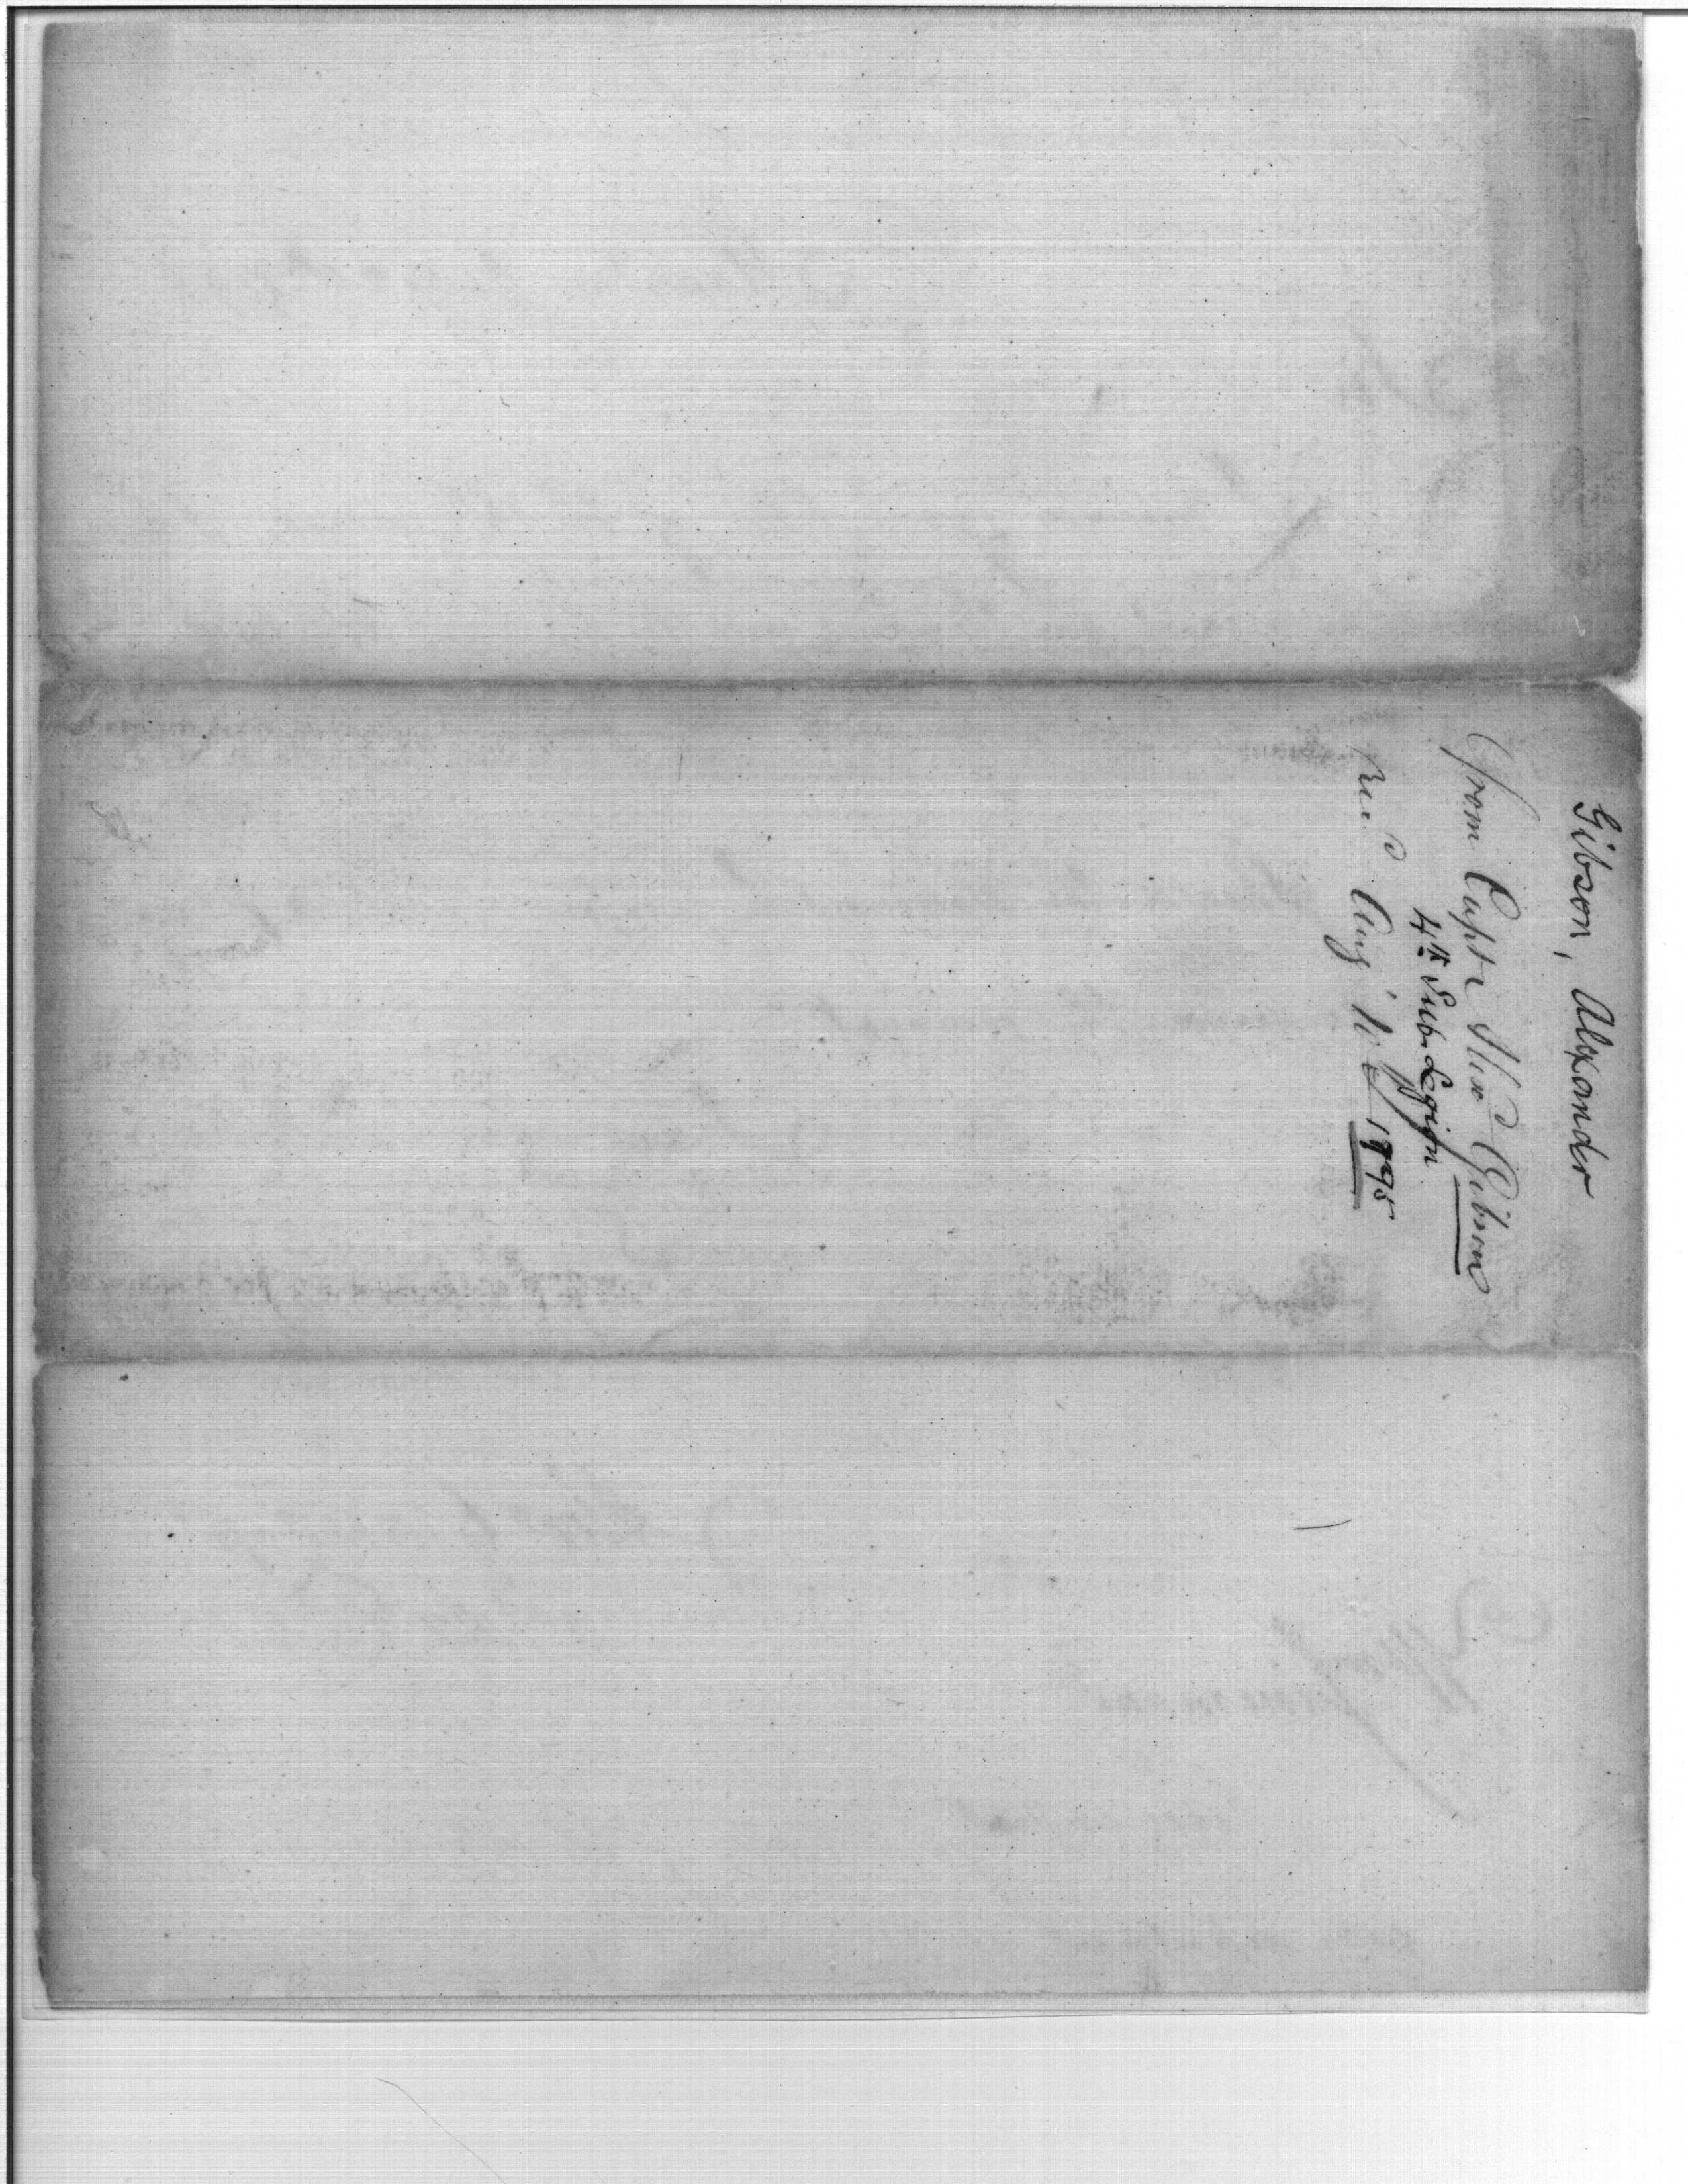 Gibson, Alexander
From Capt. Alexd Gibson
4th Sub-Legion
Recd Augt 1795